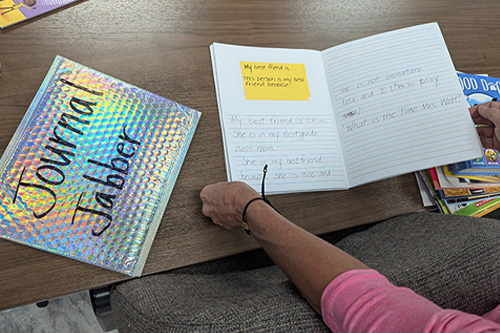 Journal
Jabber
My best friend is
This person is my best
friend because
My best friend is
She is in my
class room.
She is my best friend
because she is nice and
she is not
and I like to play
What is the Time Mrs